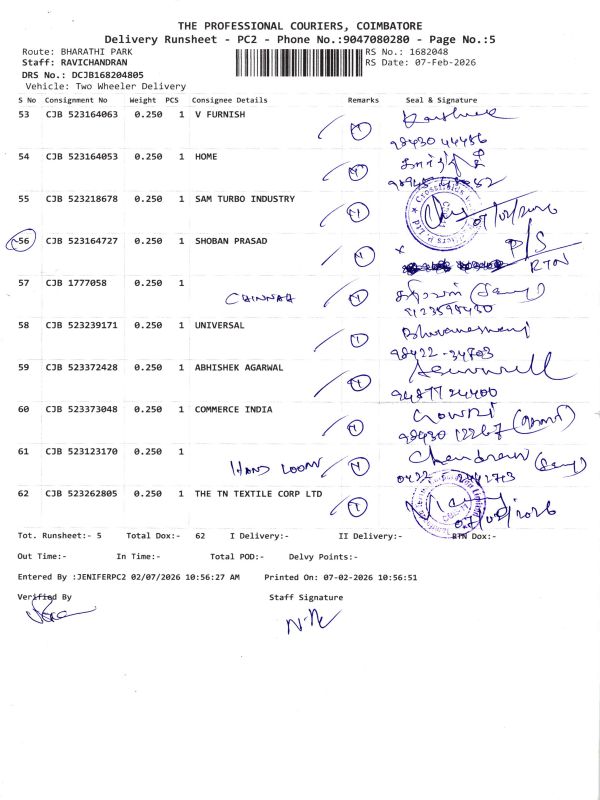 THE PROFESSIONAL COURIERS, COIMBATORE
Delivery Runsheet - PC2 - Phone No.:9047080280 - Page No.:5
Route: BHARATHI PARK RS No.: 1682048
Staff: RAVICHANDRAN RS Date: 07-Feb-2026
DRS No.: DCJB168204805
Vehicle: Two Wheeler Delivery
S No Consignment No Weight PCS Consignee Details Remarks Seal & Signature
53 CJB 523164063 0.250 1 V FURNISH
98430 44456
54 CJB 523164053 0.250 1 HOME
55 CJB 523218678 0.250 1 SAM TURBO INDUSTRY
07/02/2026
56 CJB 523164727 0.250 1 SHOBAN PRASAD N P/S
RTN
57 CJB 1777058 0.250 1 CHINNAH
58 CJB 523239171 0.250 1 UNIVERSAL
98422-34703
59 CJB 523372428 0.250 1 ABHISHEK AGARWAL
94877 24400
60 CJB 523373048 0.250 1 COMMERCE INDIA Gowri
98430 12267
61 CJB 523123170 0.250 1 HAND LOOM N
0422 2442713
62 CJB 523262805 0.250 1 THE TN TEXTILE CORP LTD
07/02/2026
Tot. Runsheet:- 5 Total Dox:- 62 I Delivery:- II Delivery:- RTN Dox:-
Out Time:- In Time:- Total POD:- Delvy Points:-
Entered By :JENIFERPC2 02/07/2026 10:56:27 AM Printed On: 07-02-2026 10:56:51
Verified By Staff Signature